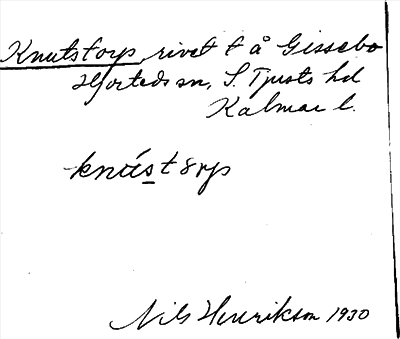 Knutstorp, rivet t å Gissebo
Hjorteds sn, S. Tjusts hd
Kalmar l.
knústorp
Nils Henrikson 1930